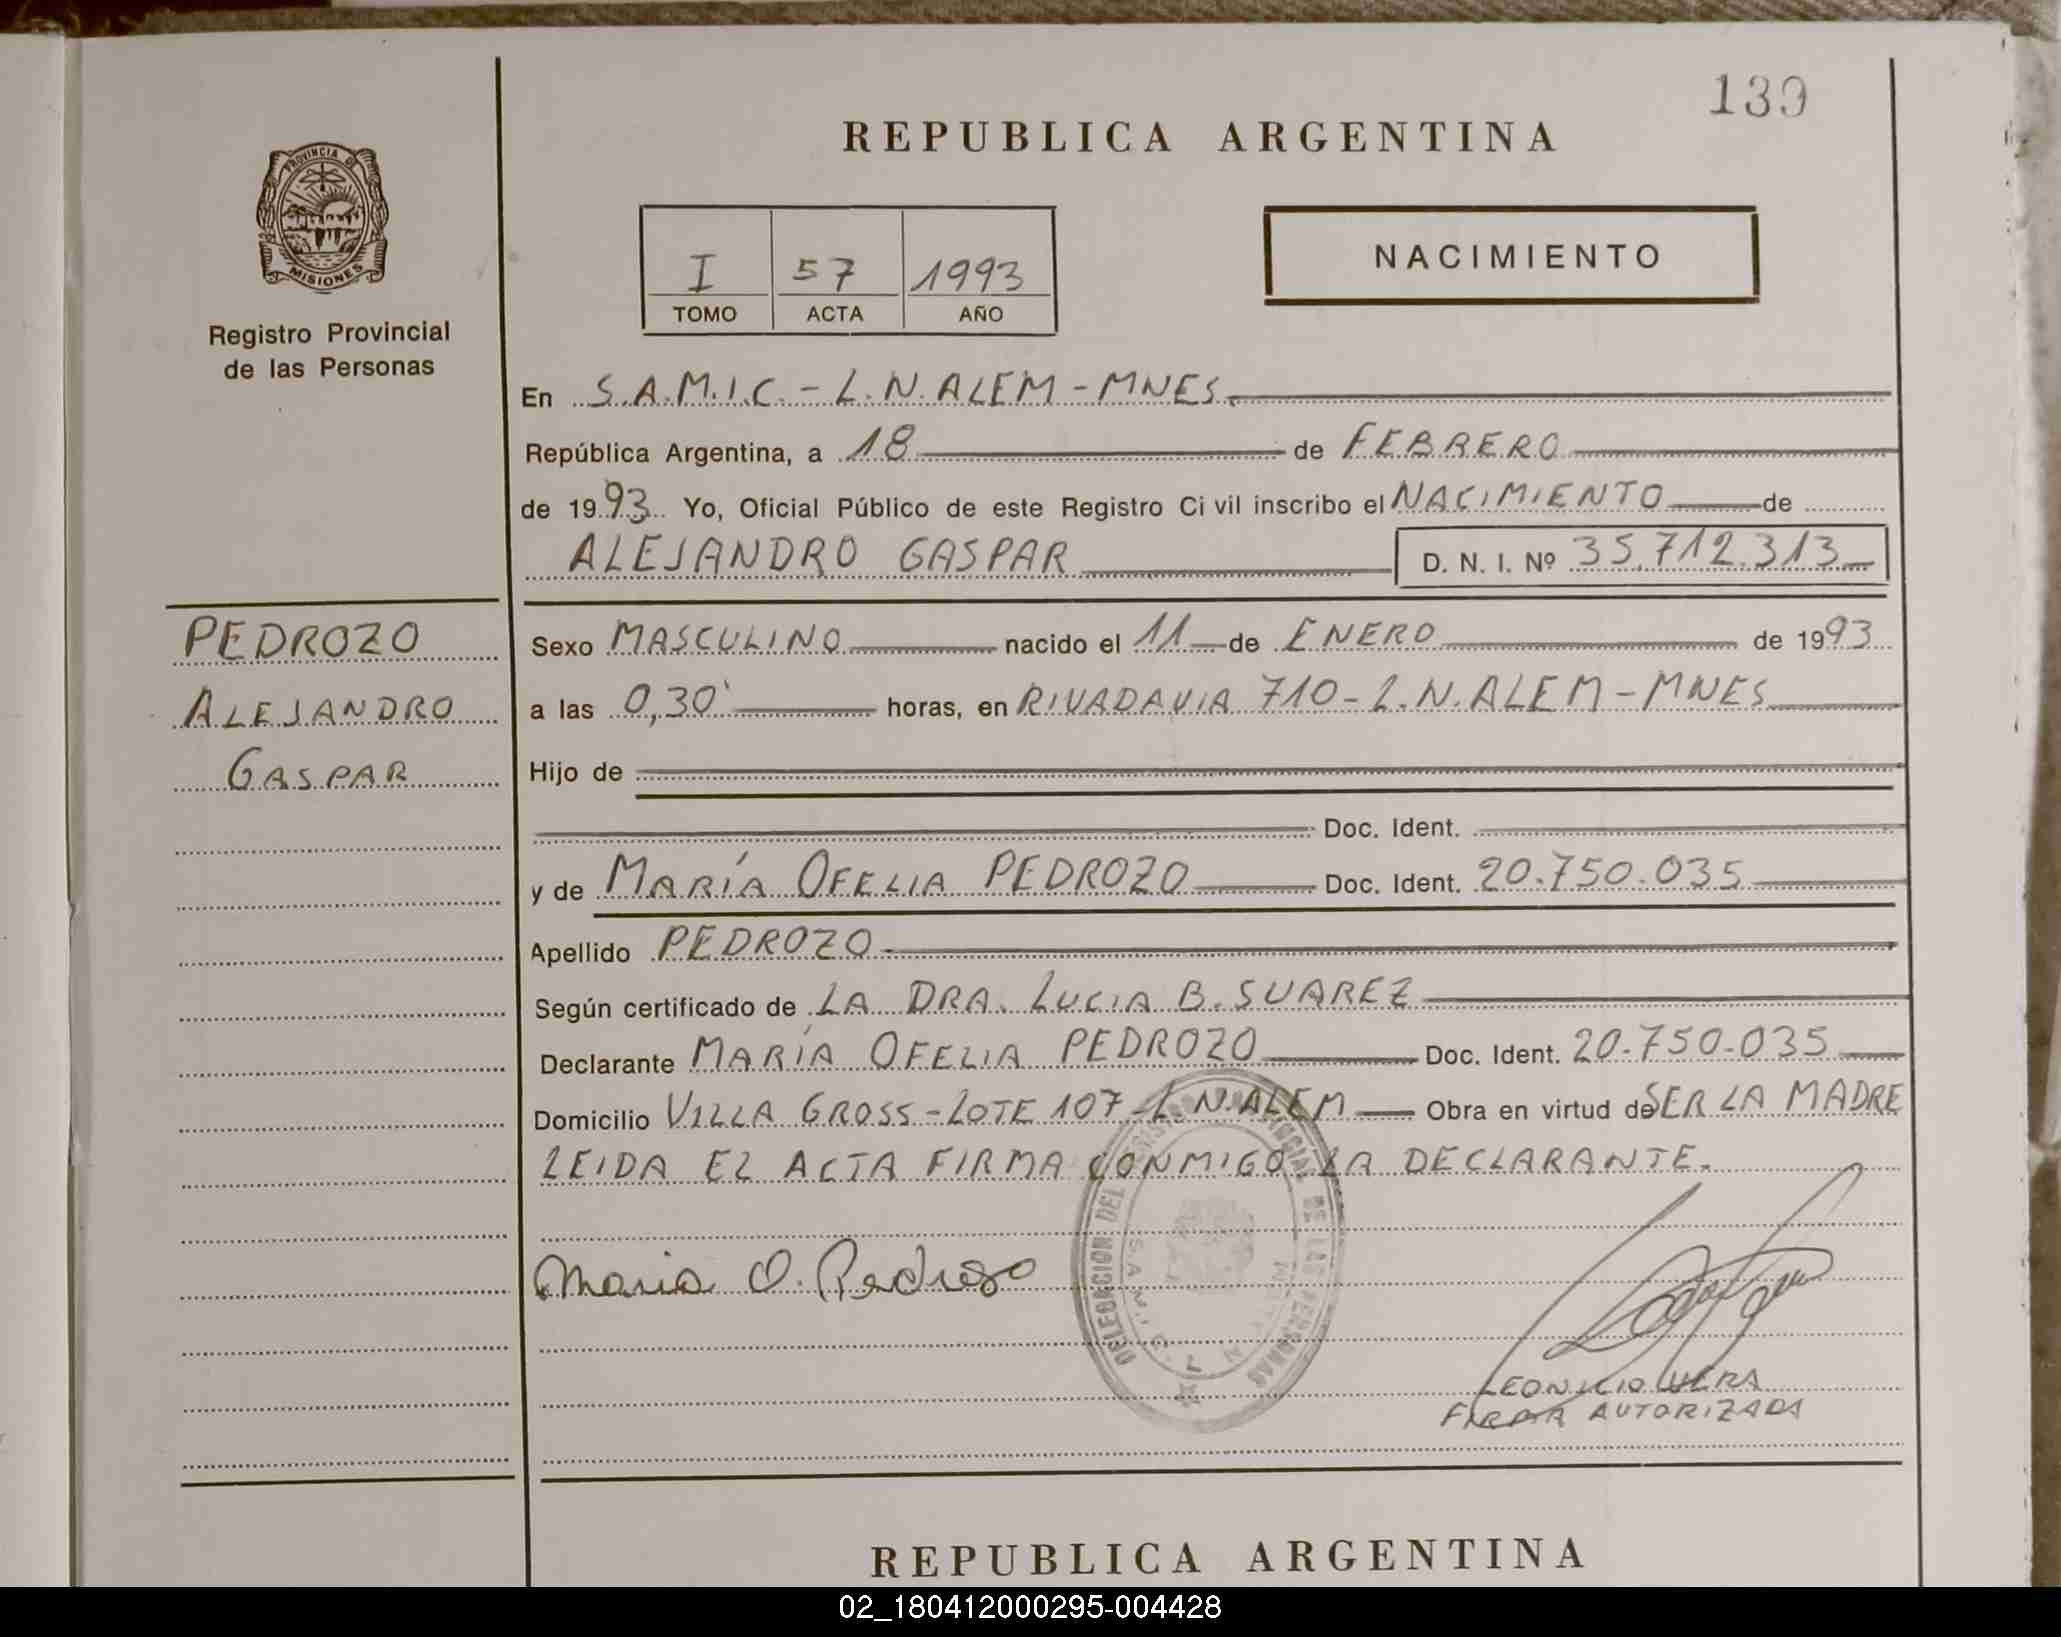 139
REPUBLICA ARGENTINA
PROVINCIA DE
MISIONES
Registro Provincial
de las Personas
I 57 1993
TOMO ACTA AÑO
NACIMIENTO
En S.A.M.I.C. - L.N. ALEM - MNES.
República Argentina, a 18 de FEBRERO
de 1993 Yo, Oficial Público de este Registro Civil inscribo el NACIMIENTO de
ALEJANDRO GASPAR D. N. I. Nº 35.712.313
PEDROZO
ALEJANDRO
GASPAR
Sexo MASCULINO nacido el 11 de ENERO de 1993
a las 0,30' horas, en RIVADAVIA 710 - L.N. ALEM - MNES
Hijo de
Doc. Ident.
y de MARÍA OFELIA PEDROZO Doc. Ident. 20.750.035
Apellido PEDROZO
Según certificado de LA DRA. LUCIA B. SUAREZ
Declarante MARÍA OFELIA PEDROZO Doc. Ident. 20.750.035
Domicilio VILLA GROSS - LOTE 107 - L.N. ALEM Obra en virtud de SER LA MADRE
LEIDA EL ACTA FIRMA CONMIGO LA DECLARANTE.
Maria O. Pedroso
DELEGACION DEL REGISTRO PROVINCIAL DE LAS PERSONAS
S.A.M.I.C.
VERA
AUTORIZADA
REPUBLICA ARGENTINA
02_180412000295-004428